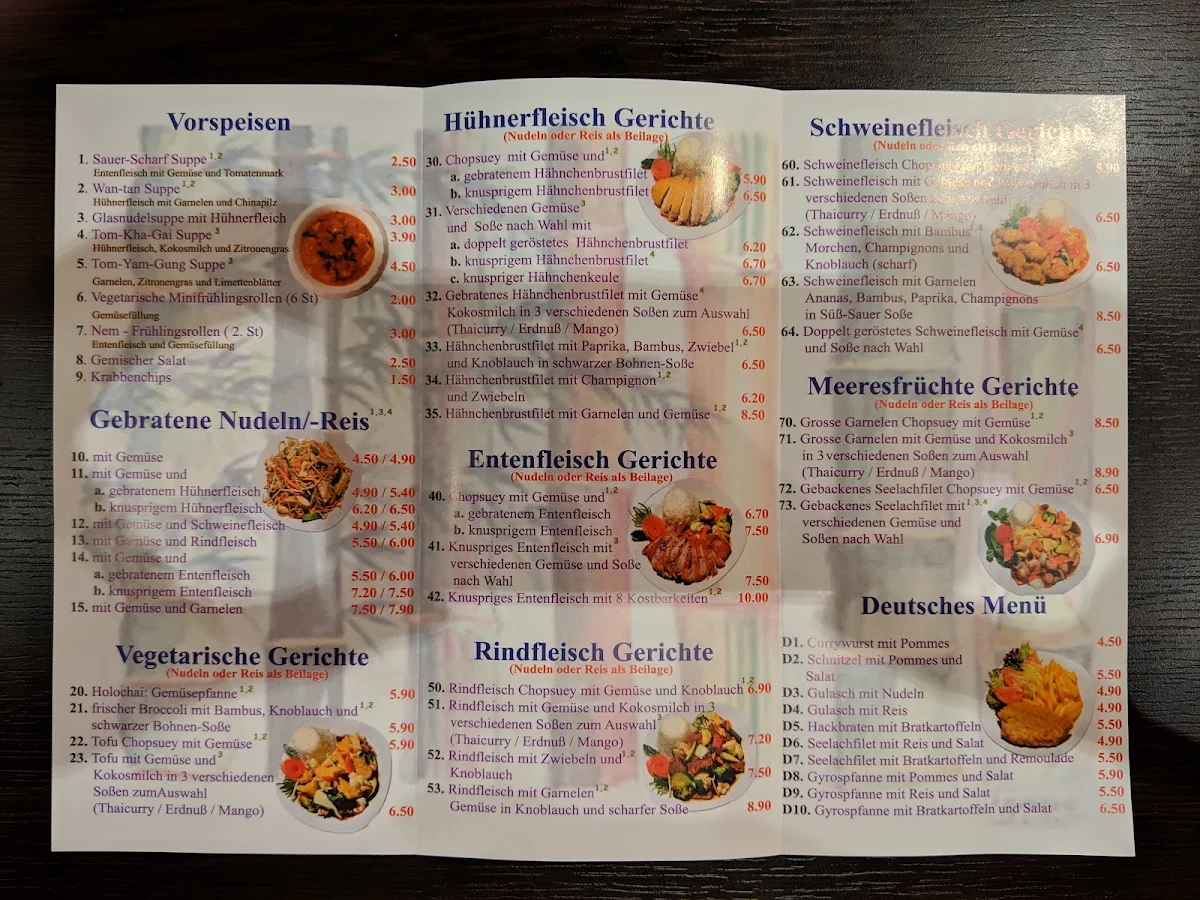 Vorspeisen
1. Sauer-Scharf Suppe 1,2 2.50
Entenfleisch mit Gemüse und Tomatenmark
2. Wan-tan Suppe 1,2 3.00
Hühnerfleisch mit Garnelen und Chinapilz
3. Glasnudelsuppe mit Hühnerfleich 3.00
4. Tom-Kha-Gai Suppe 3 3.90
Hühnerfleisch, Kokosmilch und Zitronengras
5. Tom-Yam-Gung Suppe 3 4.50
Garnelen, Zitronengras und Limettenblätter
6. Vegetarische Minifrühlingsrollen (6 St) 2.00
Gemüsefüllung
7. Nem - Frühlingsrollen ( 2. St) 3.00
Entenfleisch und Gemüsefüllung
8. Gemischer Salat 2.50
9. Krabbenchips 1.50
Gebratene Nudeln/-Reis 1,3,4
10. mit Gemüse 4.50 / 4.90
11. mit Gemüse und
a. gebratenem Hühnerfleisch 4.90 / 5.40
b. knusprigem Hühnerfleisch 6.20 / 6.50
12. mit Gemüse und Schweinefleisch 4.90 / 5.40
13. mit Gemüse und Rindfleisch 5.50 / 6.00
14. mit Gemüse und
a. gebratenem Entenfleisch 5.50 / 6.00
b. knusprigem Entenfleisch 7.20 / 7.50
15. mit Gemüse und Garnelen 7.50 / 7.90
Vegetarische Gerichte
(Nudeln oder Reis als Beilage)
20. Holochai: Gemüsepfanne 1,2 5.90
21. frischer Broccoli mit Bambus, Knoblauch und 1,2
schwarzer Bohnen-Soße 5.90
22. Tofu Chopsuey mit Gemüse 1,2 5.90
23. Tofu mit Gemüse und 3
Kokosmilch in 3 verschiedenen
Soßen zumAuswahl
(Thaicurry / Erdnuß / Mango) 6.50
Hühnerfleisch Gerichte
(Nudeln oder Reis als Beilage)
30. Chopsuey mit Gemüse und 1,2
a. gebratenem Hähnchenbrustfilet 5.90
b. knusprigem Hähnchenbrustfilet 6.50
31. Verschiedenen Gemüse 3
und Soße nach Wahl mit
a. doppelt geröstetes Hähnchenbrustfilet 6.20
b. knusprigem Hähnchenbrustfilet 4 6.70
c. knuspriger Hähnchenkeule 6.70
32. Gebratenes Hähnchenbrustfilet mit Gemüse 4
Kokosmilch in 3 verschiedenen Soßen zum Auswahl
(Thaicurry / Erdnuß / Mango) 6.50
33. Hähnchenbrustfilet mit Paprika, Bambus, Zwiebel 1,2
und Knoblauch in schwarzer Bohnen-Soße 6.50
34. Hähnchenbrustfilet mit Champignon 1,2
und Zwiebeln 6.20
35. Hähnchenbrustfilet mit Garnelen und Gemüse 1,2 8.50
Entenfleisch Gerichte
(Nudeln oder Reis als Beilage)
40. Chopsuey mit Gemüse und 1,2
a. gebratenem Entenfleisch 6.70
b. knusprigem Entenfleisch 7.50
41. Knuspriges Entenfleisch mit 3
verschiedenen Gemüse und Soße
nach Wahl 7.50
42. Knuspriges Entenfleisch mit 8 Kostbarkeiten 1,2 10.00
Rindfleisch Gerichte
(Nudeln oder Reis als Beilage)
50. Rindfleisch Chopsuey mit Gemüse und Knoblauch 1,2 6.90
51. Rindfleisch mit Gemüse und Kokosmilch in 3
verschiedenen Soßen zum Auswahl 3
(Thaicurry / Erdnuß / Mango) 7.20
52. Rindfleisch mit Zwiebeln und 1,2
Knoblauch 7.50
53. Rindfleisch mit Garnelen 1,2
Gemüse in Knoblauch und scharfer Soße 8.90
Schweinefleisch Gerichte
(Nudeln oder Reis als Beilage)
60. Schweinefleisch 5.90
61. Schweinefleisch mit in 3
verschiedenen Soßen
(Thaicurry / Erdnuß / Mango) 6.50
62. Schweinefleisch mit Bambus
Morchen, Champignons und
Knoblauch (scharf) 6.50
63. Schweinefleisch mit Garnelen
Ananas, Bambus, Paprika, Champignons
in Süß-Sauer Soße 8.50
64. Doppelt geröstetes Schweinefleisch mit Gemüse 4
und Soße nach Wahl 6.50
Meeresfrüchte Gerichte
(Nudeln oder Reis als Beilage)
70. Grosse Garnelen Chopsuey mit Gemüse 1,2 8.50
71. Grosse Garnelen mit Gemüse und Kokosmilch 3
in 3 verschiedenen Soßen zum Auswahl
(Thaicurry / Erdnuß / Mango) 8.90
72. Gebackenes Seelachfilet Chopsuey mit Gemüse 1,2 6.50
73. Gebackenes Seelachfilet mit 1,3,4
verschiedenen Gemüse und
Soßen nach Wahl 6.90
Deutsches Menü
D1. Currywurst mit Pommes 4.50
D2. Schnitzel mit Pommes und
Salat 5.50
D3. Gulasch mit Nudeln 4.90
D4. Gulasch mit Reis 4.90
D5. Hackbraten mit Bratkartoffeln 5.50
D6. Seelachfilet mit Reis und Salat 4.90
D7. Seelachfilet mit Bratkartoffeln und Remoulade 5.50
D8. Gyrospfanne mit Pommes und Salat 5.90
D9. Gyrospfanne mit Reis und Salat 5.50
D10. Gyrospfanne mit Bratkartoffeln und Salat 6.50